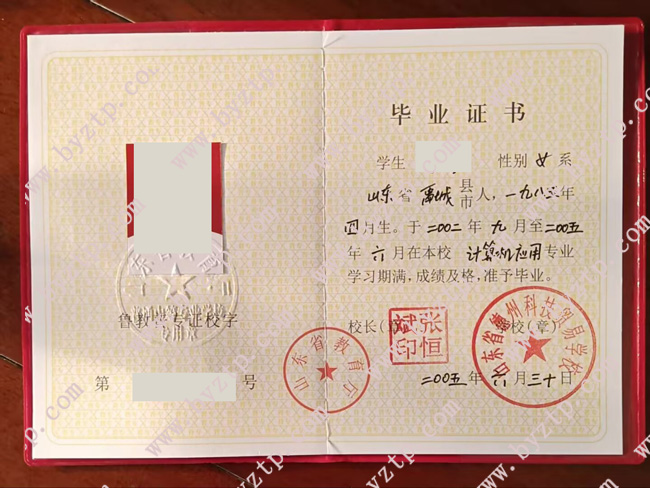 毕业证书
学生 性别 女 系
山东省 禹城 县市 人，一九八三年
四月生。于二00二年九月至二00五
年六月在本校 计算机应用 专业
学习期满，成绩及格，准予毕业。
校长（章） 学校（章）
张恒斌印
山东省德州科技贸易学校
二00五年六月三十日
山东省教育厅
鲁教中专证校字
专用章
第 号
www.byztp.com